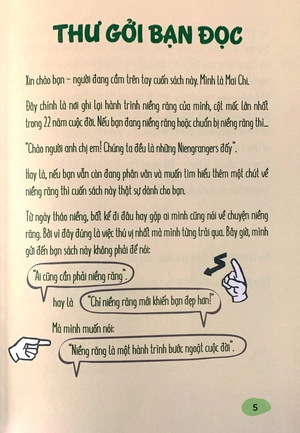 THƯ GỞI BẠN ĐỌC
Xin chào bạn – người đang cầm trên tay cuốn sách này. Mình là Mai Chi.
Đây chính là nơi ghi lại hành trình niềng răng của mình, cột mốc lớn nhất
trong 22 năm cuộc đời. Nếu bạn đang niềng răng hoặc chuẩn bị niềng răng thì...
"Chào người anh chị em! Chúng ta đều là những Niengrangers đấy".
Hay là, nếu bạn vẫn còn đang phân vân và muốn tìm hiểu thêm một chút về
niềng răng thì cuốn sách này thật sự dành cho bạn.
Từ ngày tháo niềng, bất kể đi đâu hay gặp ai mình cũng nói về chuyện niềng
răng. Bởi vì đây đúng là việc thú vị nhất mà mình từng trải qua. Bây giờ, mình
gửi đến bạn sách này không phải để nói:
"Ai cũng cần phải niềng răng"
hay là "Chỉ niềng răng mới khiến bạn đẹp hơn!"
Mà mình muốn nói:
"Niềng răng là một hành trình bước ngoặt cuộc đời".
5